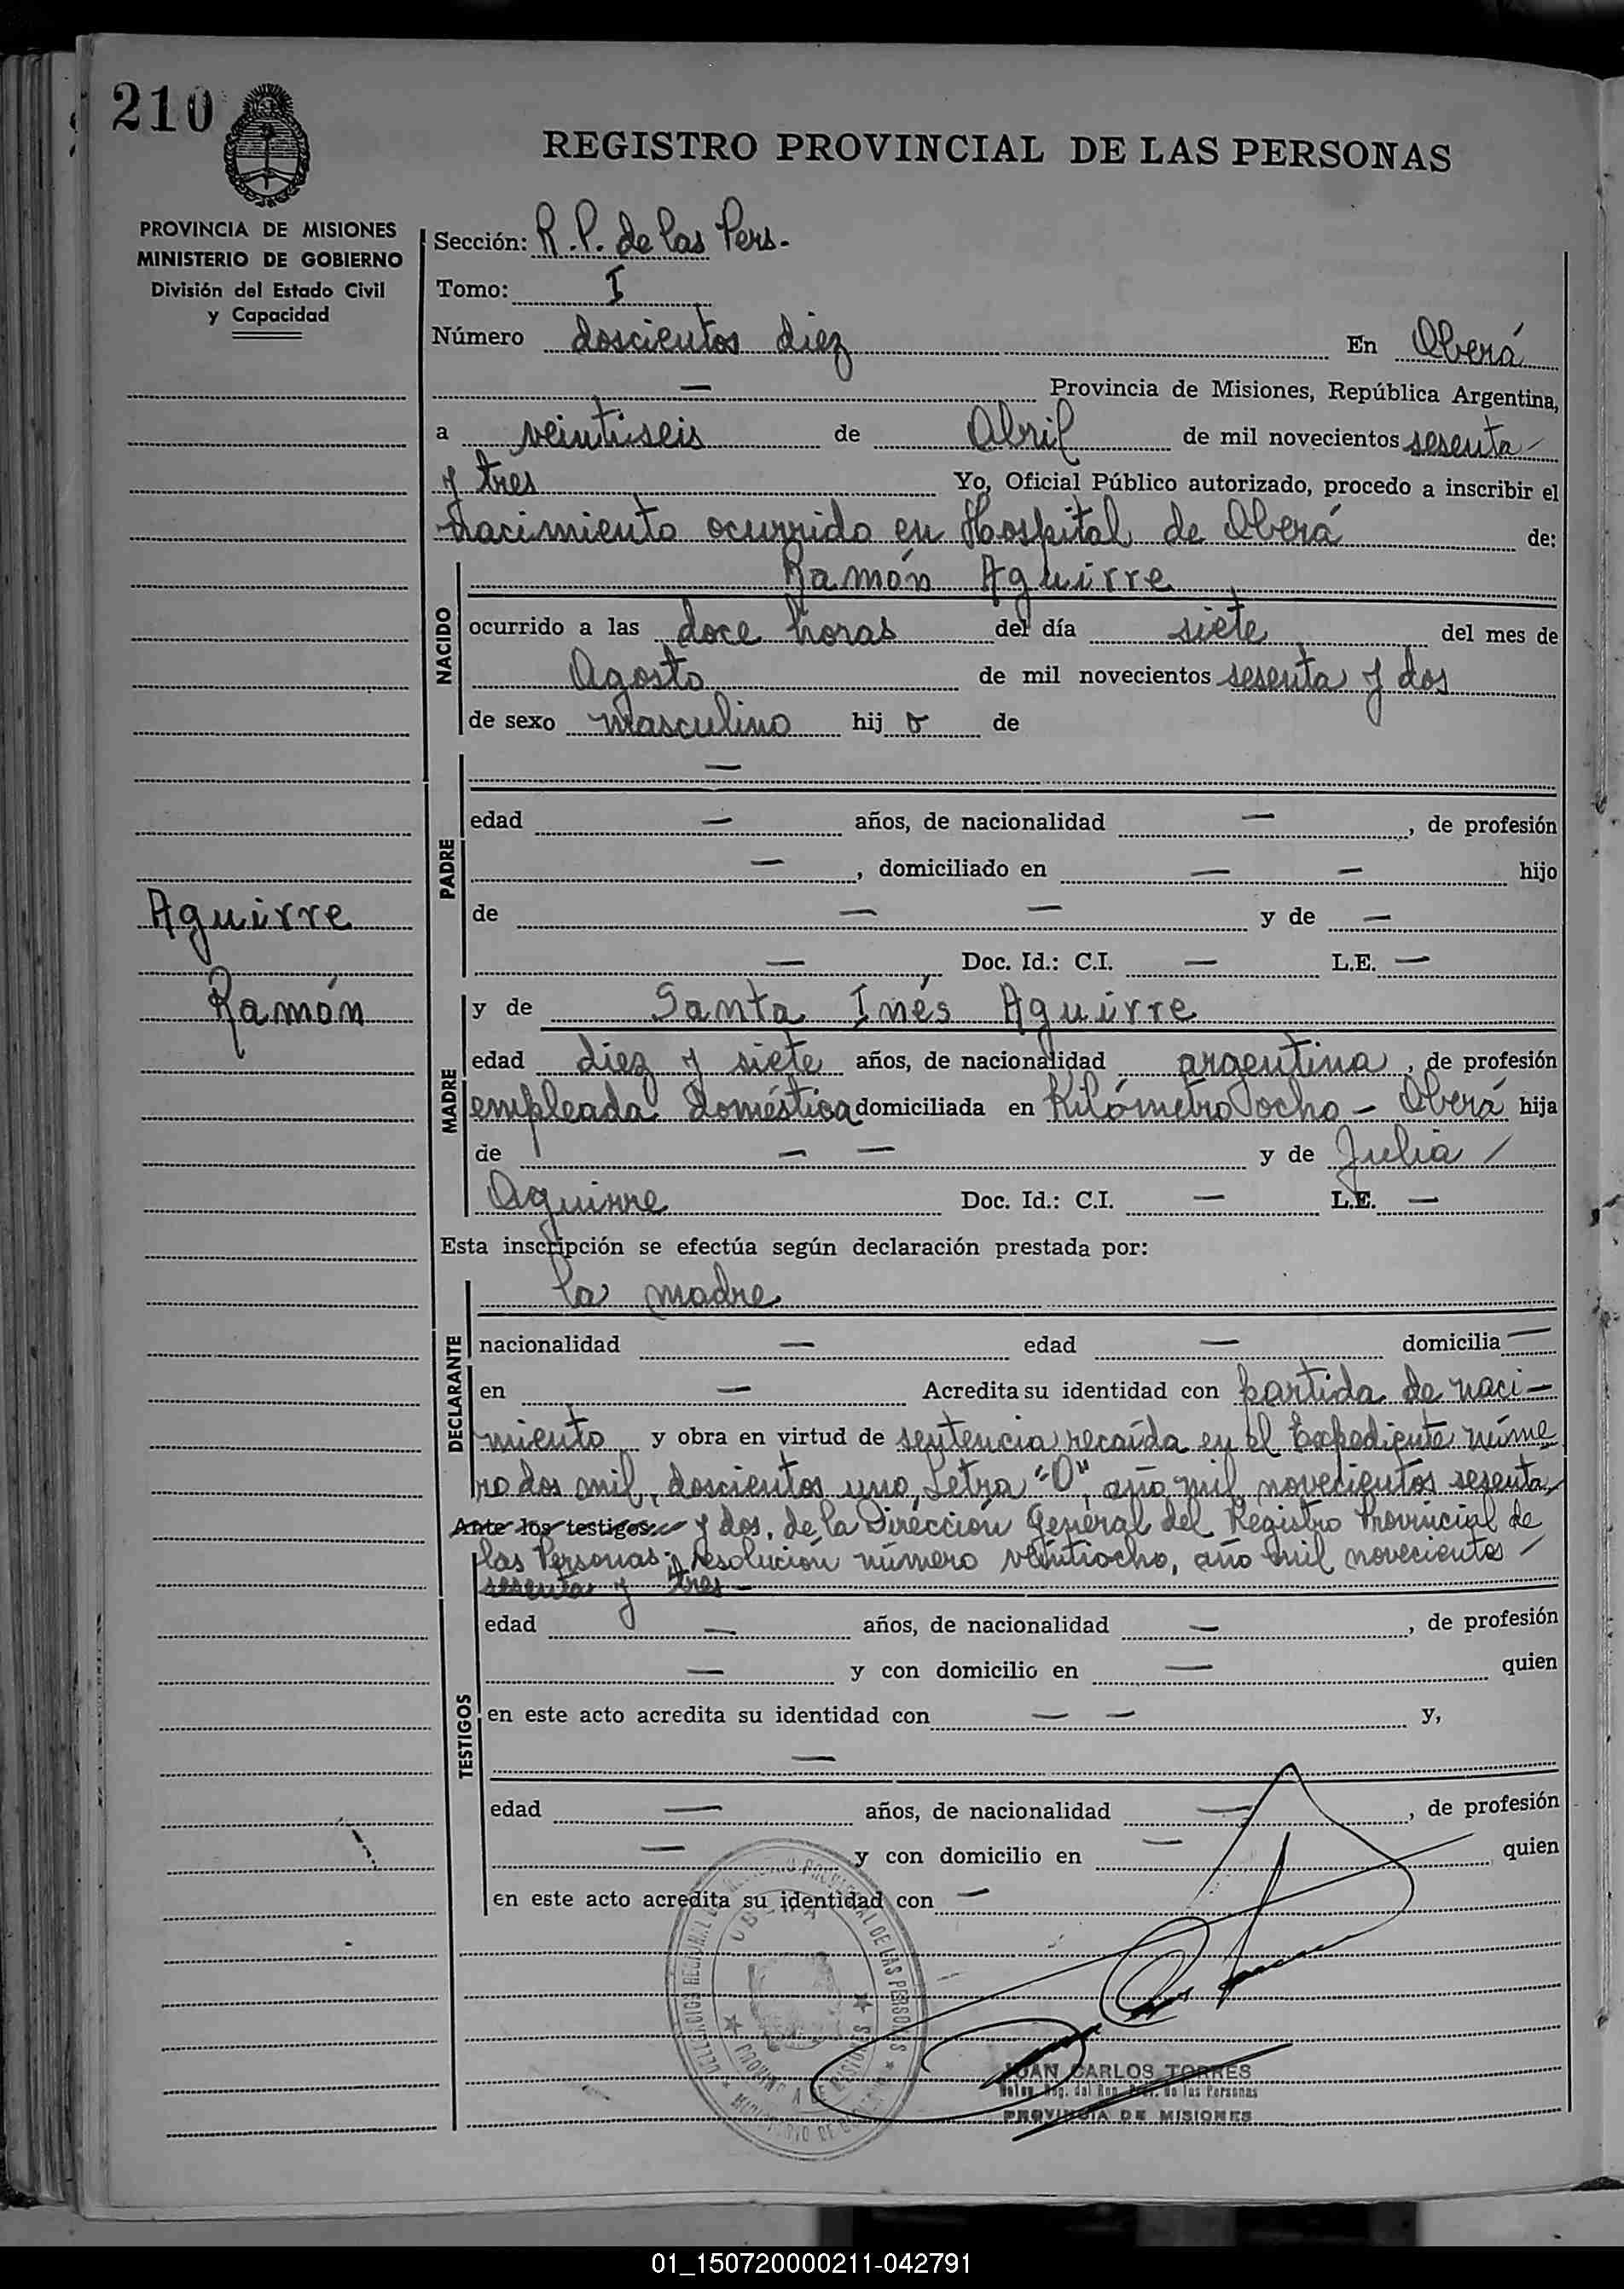 210
REGISTRO PROVINCIAL DE LAS PERSONAS
PROVINCIA DE MISIONES
MINISTERIO DE GOBIERNO
División del Estado Civil
y Capacidad
Sección: R.P. de las Pers.
Tomo: I
Número doscientos diez En Oberá
— Provincia de Misiones, República Argentina,
a veintiseis de Abril de mil novecientos sesenta
y tres Yo, Oficial Público autorizado, procedo a inscribir el
nacimiento ocurrido en Hospital de Oberá de:
NACIDO
Ramón Aguirre
ocurrido a las doce horas del día siete del mes de
Agosto de mil novecientos sesenta y dos
de sexo masculino hijo de
PADRE
—
edad — años, de nacionalidad — , de profesión
— , domiciliado en — — hijo
de — — y de —
— Doc. Id.: C.I. — L.E. —
Aguirre
Ramón
MADRE
y de Santa Inés Aguirre
edad diez y siete años, de nacionalidad argentina , de profesión
empleada doméstica domiciliada en Kilómetro ocho - Oberá hija
de — — y de Julia /
Aguirre Doc. Id.: C.I. — L.E. —
Esta inscripción se efectúa según declaración prestada por:
DECLARANTE
la madre
nacionalidad — edad — domicilia —
en — Acredita su identidad con partida de naci-
miento y obra en virtud de sentencia recaída en el Expediente núme
ro dos mil, doscientos uno, Letra "O", año mil novecientos sesenta
Ante los testigos: y dos, de la Dirección General del Registro Provincial de
las Personas; Resolución número veintiocho, año mil novecientos /
sesenta y tres —
TESTIGOS
edad — años, de nacionalidad — , de profesión
— y con domicilio en — quien
en este acto acredita su identidad con — — y,
—
edad — años, de nacionalidad — , de profesión
— y con domicilio en — quien
en este acto acredita su identidad con —
PROVINCIAL DE LAS PERSONAS
PROVINCIA DE MISIONES
JUAN CARLOS TORRES
Deleg. Reg. del Reg. Prov. de las Personas
PROVINCIA DE MISIONES
01_150720000211-042791